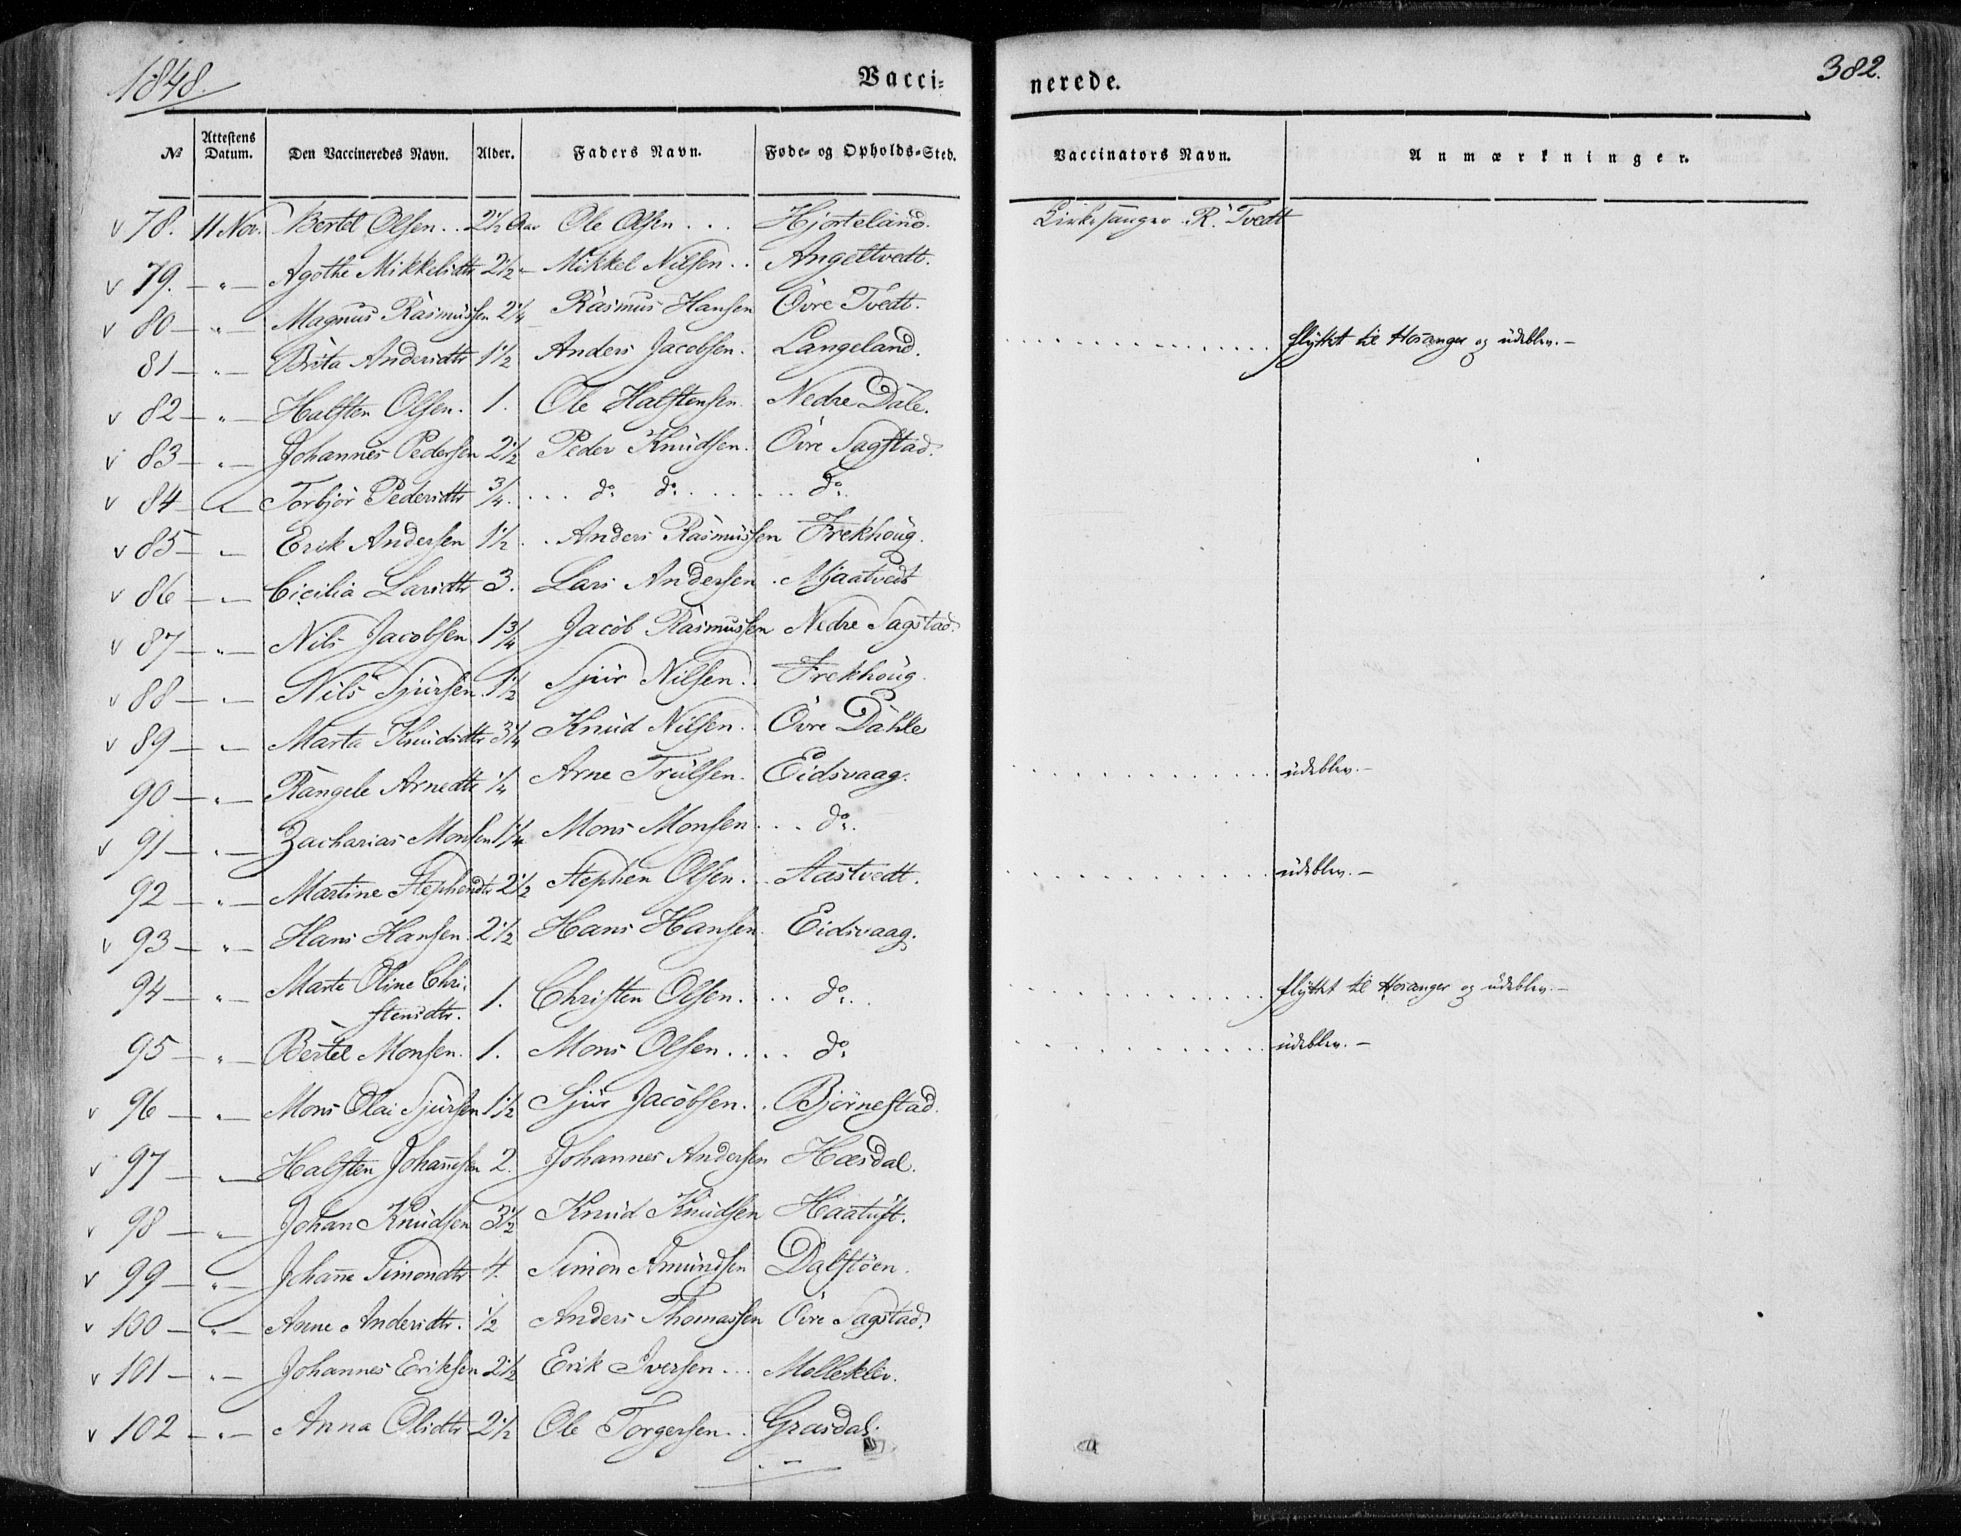 1848.
Vaccinerede.
382.
№ Attestens Datum. Den Vaccineredes Navn. Alder. Faders Navn. Føde- og Opholds-Sted. Vaccinators Navn. Anmærkninger.
v 78. 11 Nov. Bertel Olsen .. 2 1/2 Aar Ole Olsen ... Hjorteland. Kirkesanger R. Tvedt
v 79. — " — Agathe Mikkelsdtr 2 1/2 — Mikkel Nilsen .. Angeltvedt.
v 80 — " — Magnus Rasmussen 2 1/4 Rasmus Hansen Övre Tvedt.
81 — " — Brita Andersdtr 1 1/2 Anders Jacobsen. Langeland. . . . . flyttet til Hosanger og udeblev. —
v 82 — " — Halsten Olsen. 1. Ole Halstensen. Nedre Dale.
v 83 — " — Johannes Pedersen 2 1/2 Peder Knudsen. Övre Sagstad.
v 84 — " — Torbjör Pedersdtr 3/4. ... do do ... do.
v 85 — " — Erik Andersen 1 1/2 . Anders Rasmussen Frekhoug.
v 86 — " — Cicilia Larsdtr 3. Lars Andersen . Mjaatvedt
v 87 — " — Nils Jacobsen 1 3/4 Jacob Rasmussen Nedre Sagstad.
v 88 — " — Nils Sjursen. 1 1/2 Sjur Nilsen. Frekhoug.
v 89 — " — Marta Knudsdtr 3 1/4 Knud Nilsen. Övre Dahle
90 — " — Rangele Arnedtr 1/4 Arne Trulsen. Eidsvaag. . . . . udeblev. —
v 91 — " — Zacharias Monsen 1 1/4 Mons Monsen ... do.
92 — " — Martine Stephendtr 2 1/2 Stephen Olsen ... Aastvedt. . . . . udeblev. —
v 93 — " — Hans Hansen. 2 1/2 Hans Hansen. Eidsvaag.
94 — " — Marte Oline Chri-
stensdtr. 1. Christen Olsen. .. do.. . . . . flyttet til Hosanger og udeblev. —
95 — " — Bertel Monsen. 1. Mons Olsen .... do. . . . . udeblev. —
v 96 — " — Mons Olai Sjursen 1 1/2 Sjur Jacobsen. . Björnestad.
v 97 — " — Halsten Johannesen 2. Johannes Andersen Hæsdal.
v 98 — " — Johan Knudsen 3 1/2 Knud Knudsen Haatuft.
v 99 — " — Johanne Simondtr 4. Simon Amundsen Dalstöen.
v 100 — " — Anne Andersdtr. 1/2 Anders Thomassen Övre Sagstad.
v 101 — " — Johannes Eriksen 2 1/2 Erik Iversen ... Mölleklev.
v 102 — " — Anna Olsdtr 2 1/2 Ole Torgersen .. Græsdal.